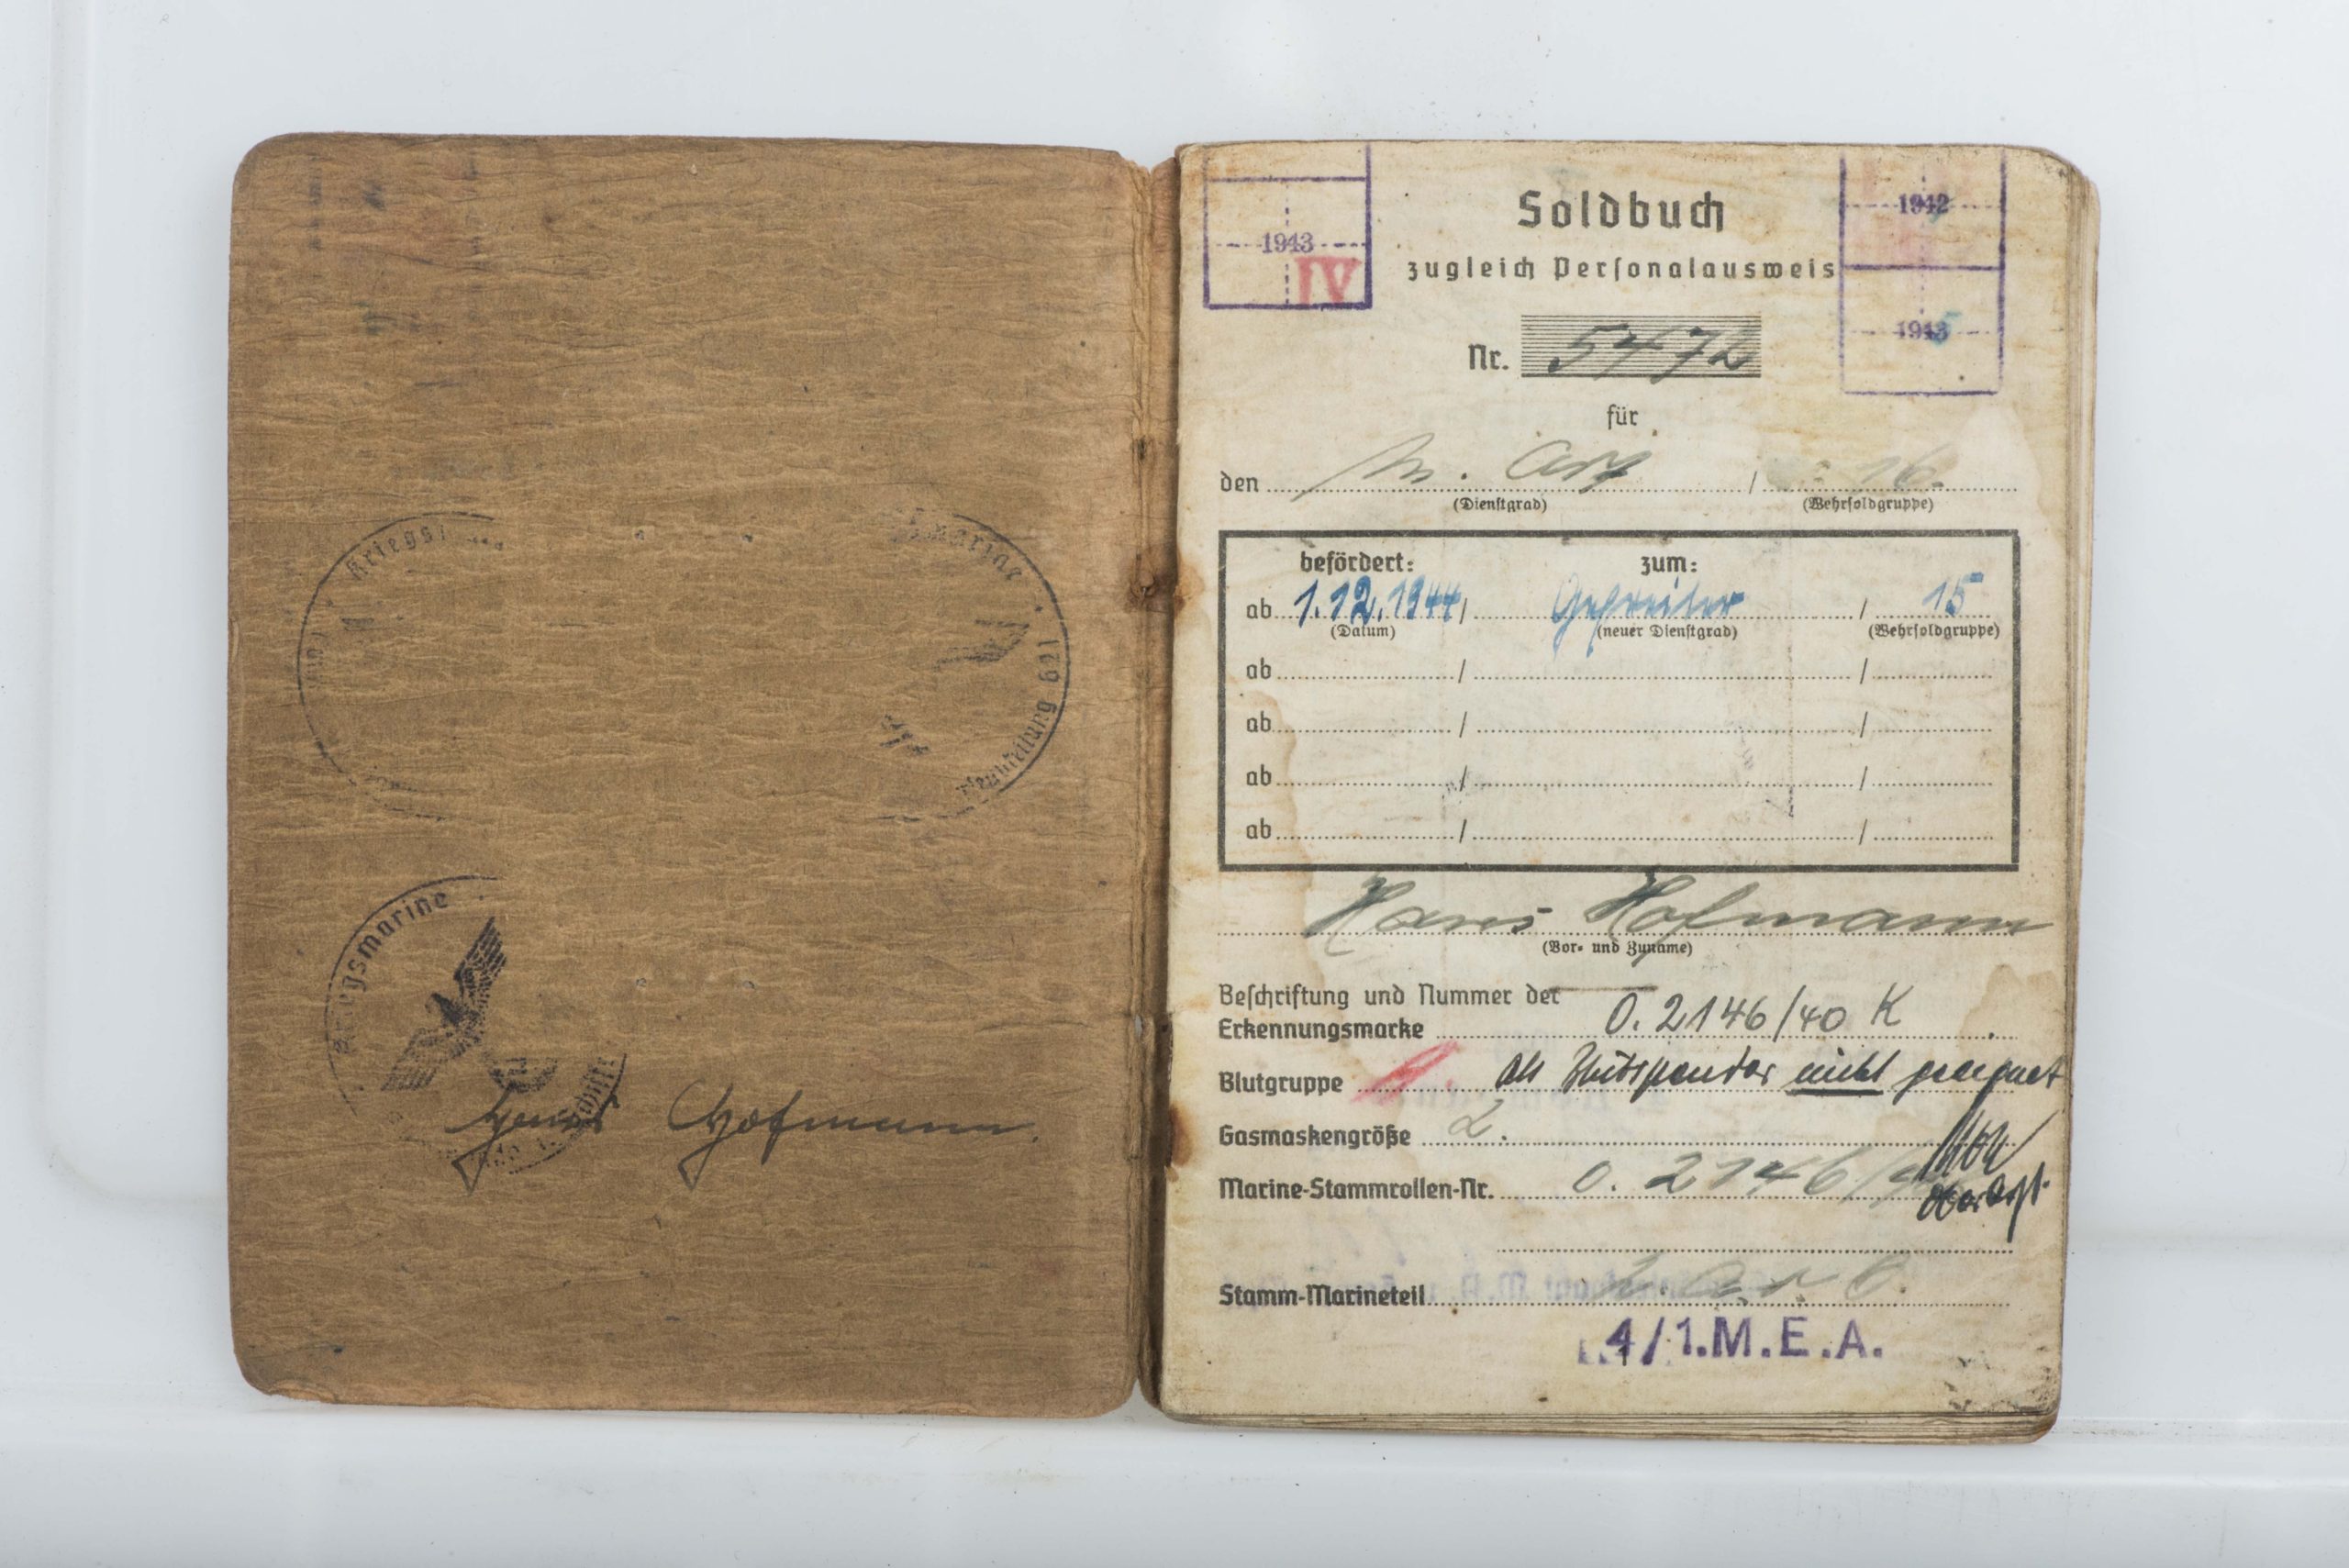 Kriegs
marine
Abteilung 621
Kriegsmarine
Hans Hofmann.
1943
IV
1942
1943
Soldbuch
zugleich Personalausweis
Nr. 5472
für
den M. Art / 16.
(Dienstgrad) (Wehrsoldgruppe)
befördert: zum:
ab 1.12.1944 / Gefreiter / 15
(Datum) (neuer Dienstgrad) (Wehrsoldgruppe)
ab / /
ab / /
ab / /
ab / /
Hans Hofmann
(Vor- und Zuname)
Beschriftung und Nummer der
Erkennungsmarke 0. 2146/40 K
Blutgruppe A. als Blutspender nicht geeignet
Gasmaskengröße 2.
Marine-Stammrollen-Nr. 0. 2146/
Stamm-Marineteil
4/1.M.E.A.